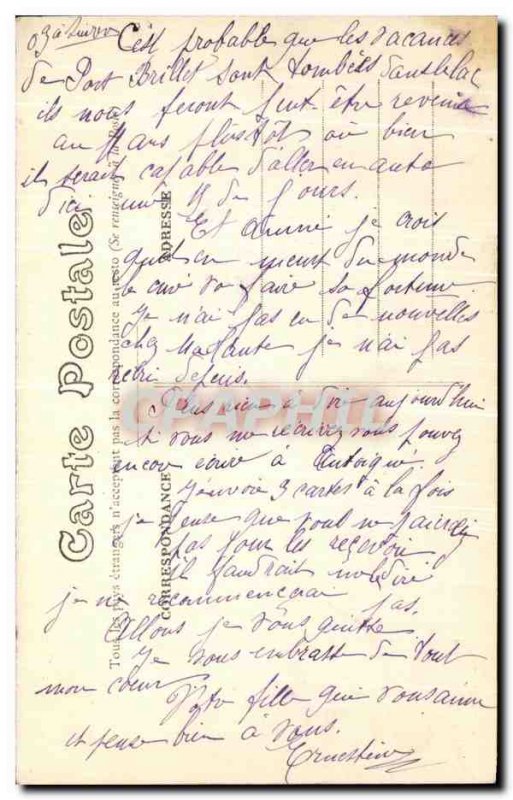 C'est probable que les vacances
de Port Brillet sont tombées dans le lac
ils nous feront peut être revenir
au Mans plustôt ou bien
ils serait capable d'aller en auto
d'ici une 15 de jours.
Et année je crois
qu'il en meurt du monde
le curé va faire sa fortune
Je n'ai pas eu de nouvelles
chez Ma Tante je n'ai pas
récri depuis.
Plus rien à dire aujourd'hui
si vous me récrivez vous pouvez
encore écrire à Antoigné.
J'envoie 3 cartes à la fois
je pense que vous ne paierez
pas pour les recevoir
il faudrait me le dire
je ne recommencerai pas.
Allons je vous quitte
Je vous embrasse de tout
mon coeur
Votre fille qui vous aime
et pense bien à vous.
Ernestine
Carte Postale
Tous les pays étrangers n'acceptent pas la correspondance au recto (Se renseigner à la Poste)
CORRESPONDANCE
ADRESSE
CPAPHIL